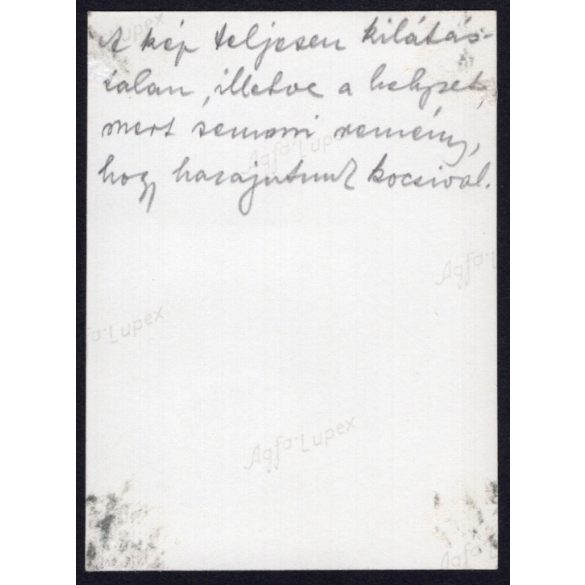 A kép teljesen kilátás-
talan, illetve a helyzet,
mert semmi remény,
hogy hazajutunk kocsival.
Agfa-Lupex
Agfa-Lupex
Agfa-Lupex
Agfa-Lupex